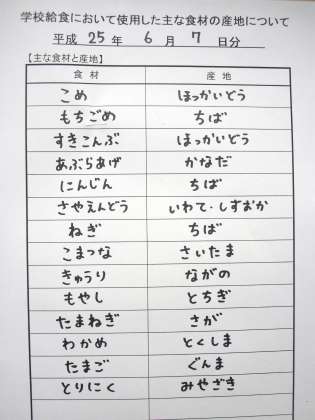 学校給食において使用した主な食材の産地について
平成 25 年 6 月 7 日分
【主な食材と産地】
食材 産地
こめ ほっかいどう
もちごめ ちば
すきこんぶ ほっかいどう
あぶらあげ かなだ
にんじん ちば
さやえんどう いわて・しずおか
ねぎ ちば
こまつな さいたま
きゅうり ながの
もやし とちぎ
たまねぎ さが
わかめ とくしま
たまご ぐんま
とりにく みやざき